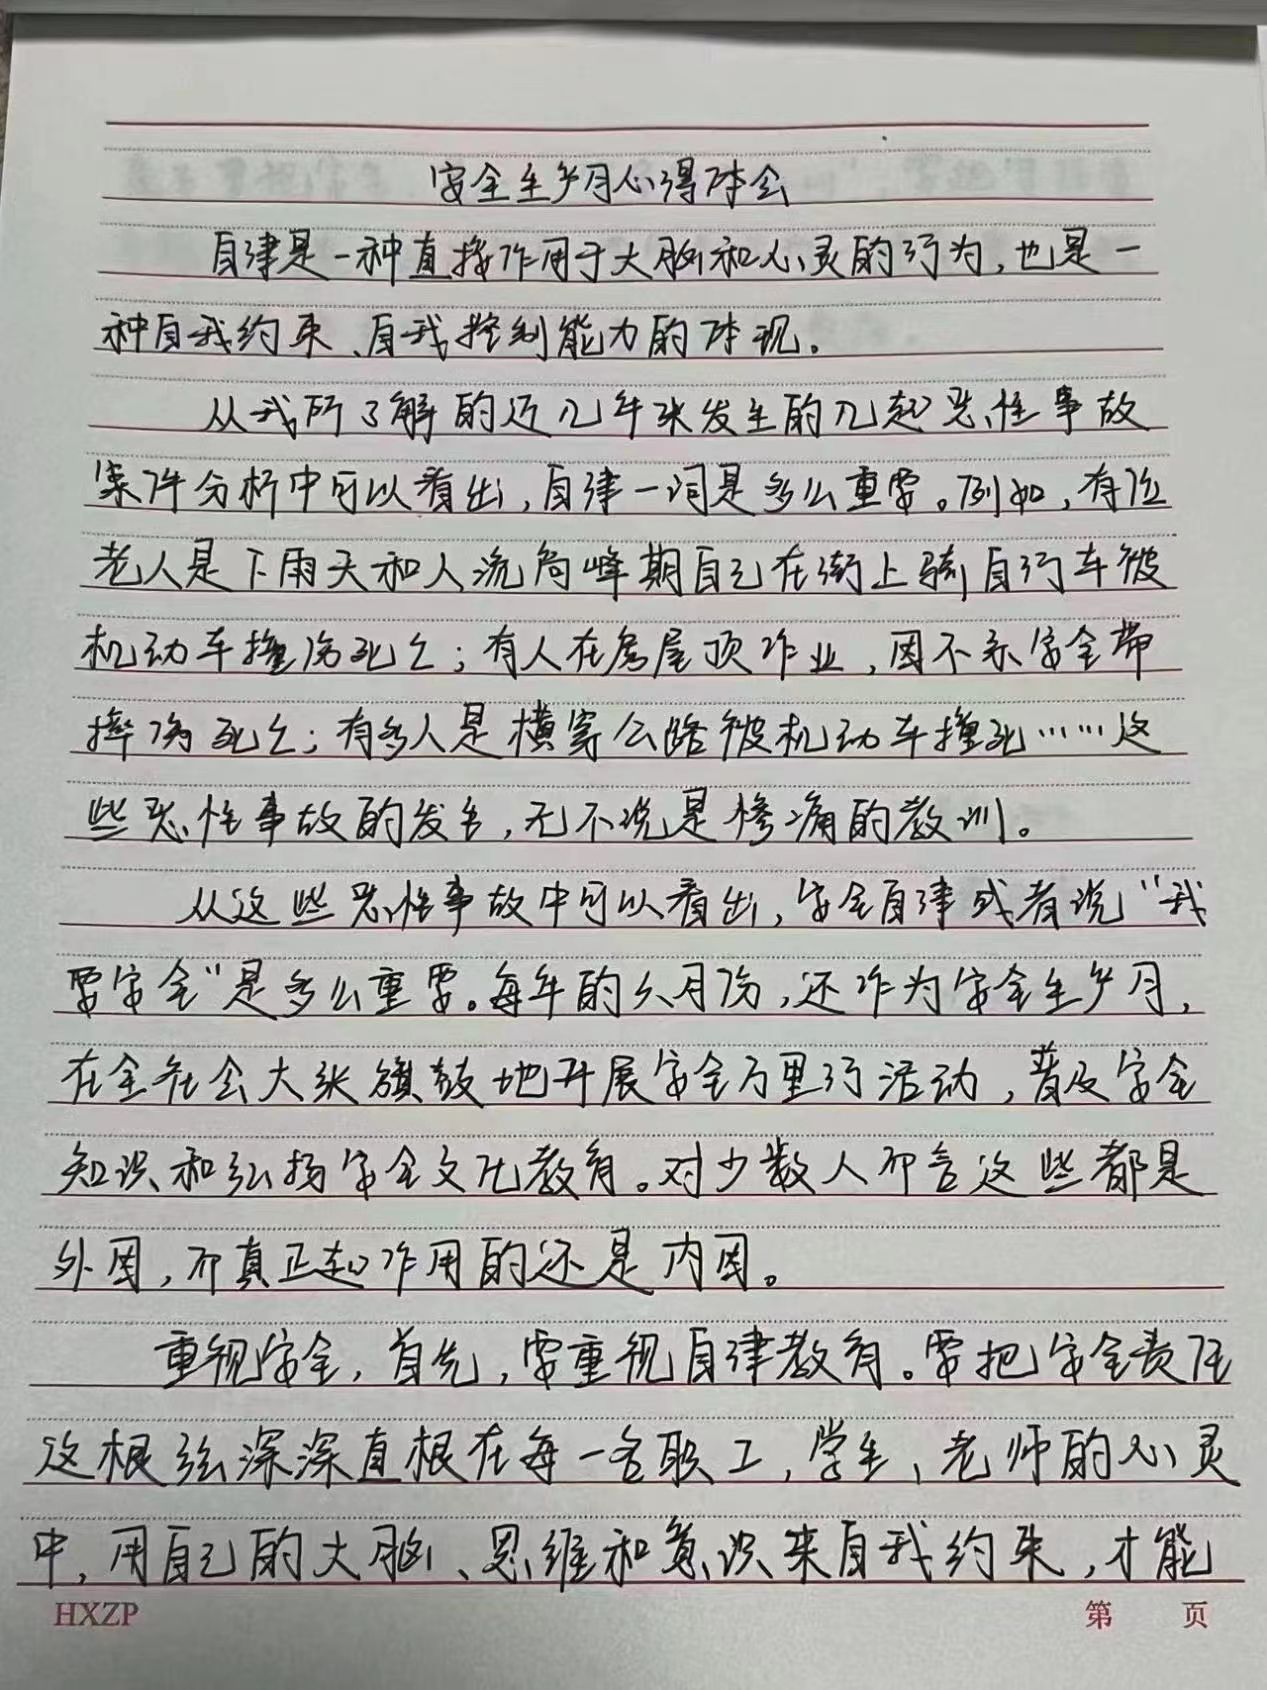 安全生产月心得体会
自律是一种直接作用于大脑和心灵的行为,也是一
种自我约束、自我控制能力的体现。
从我所了解的近几年来发生的几起恶性事故
案件分析中可以看出,自律一词是多么重要。例如,有位
老人是下雨天和人流高峰期自己在街上骑自行车被
机动车撞伤死亡;有人在房屋顶作业,因不系安全带
摔伤死亡;有多人是横穿公路被机动车撞死……这
些恶性事故的发生,无不说是惨痛的教训。
从这些恶性事故中可以看出,安全自律或者说“我
要安全”是多么重要。每年的六月份,还作为安全生产月,
在全社会大张旗鼓地开展安全万里行活动,普及安全
知识和弘扬安全文化教育。对少数人而言这些都是
外因,而真正起作用的还是内因。
重视安全,首先,要重视自律教育。要把安全责任
这根弦深深直根在每一名职工,学生、老师的心灵
中,用自己的大脑、思维和意识来自我约束,才能
HXZP 第 页